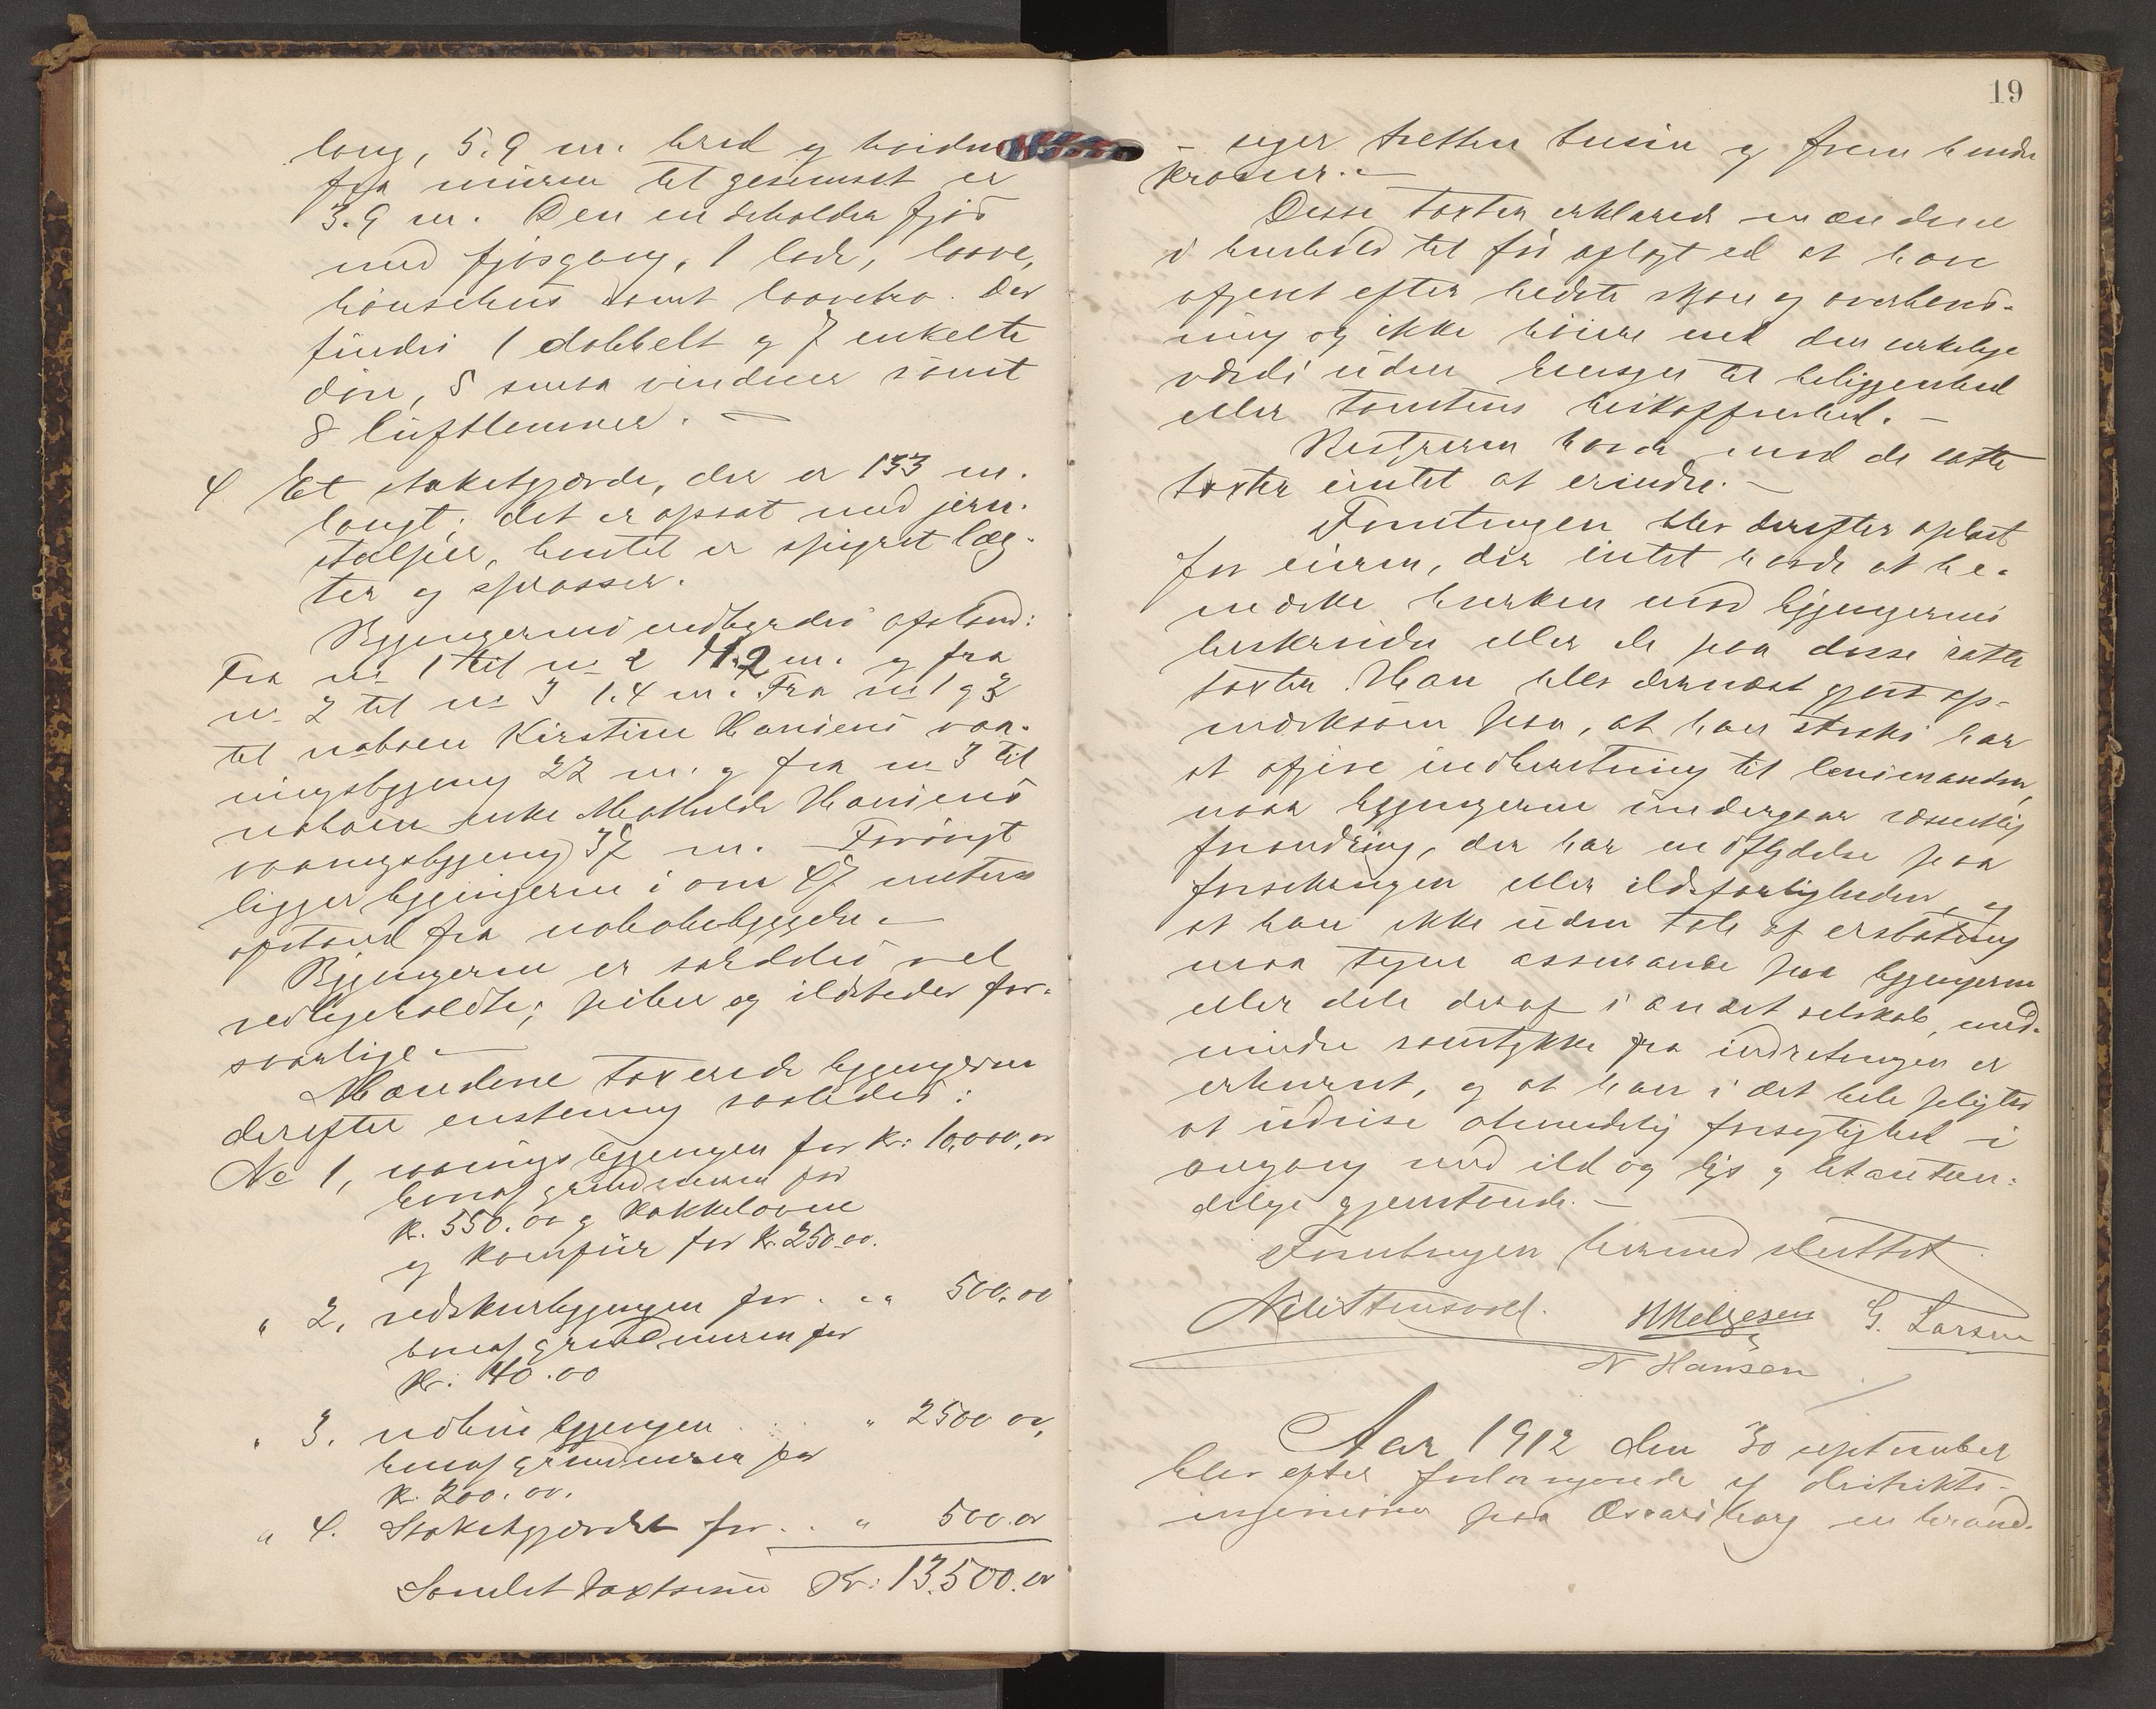 lang, 5.9 m. bred og høiden
fra muren til gesimset er
3.9 m. Den indeholder fjøs
med fjøsgang, 1 lade, laave,
hønsehus samt laavebro. Der
findes 1 dobbelt og 7 enkelte
døre, 5 smaa vinduer samt
8 luftlemmer.
4 Et staketgjærde, der er 133 m.
langt; det er opsat med jern-
stolper, hvortil er spigret læg-
ter og sprosser.
Bygningernes indbyrdes afstand:
Fra no 1 til no 2 11.2 m. og fra
no 2 til no 3 1.4 m. Fra no 1 og 3
til naboen Kirstine Hansens vaa-
ningsbygning 22 m. og fra no 3 til
naboen enke Mathilde Hansens
vaaningsbygning 37 m. Forøvrigt
ligger bygningerne i over 47 meters
afstand fra nabobebyggelse.
Bygningerne er særdeles vel
vedligeholdte; piber og ildsteder for-
svarlige.
Mændene taxerede bygningerne
derefter enstemmig saaledes:
No 1, vaaningsbygningen for kr: 10,000,00
heraf grundmuren for
kr. 550.00 og kakkelovne
og komfur for kr. 250.00.
" 2, vedskurbygningen for . " 500,00
heraf grundmuren for
kr: 40.00
" 3. udhusbygningen . . " 2500 00,
heraf grundmuren for
kr. 200.00.
" 4. Staketgjærdet for . . " 500.00
Samlet taxtsum Kr: 13.500.00
19
- siger tretten tusen og fem hundre
kroner.-
Disse taxter erklærede mændene
i henhold til før aflagt ed at have
afgivet efter bedste skjøn og overbevis-
ning og ikke høiere end den virkelige
værdi uden hensyn til beliggenhed
eller tomtens beskaffenhed.-
Bestyreren havde mod de satte
taxter intet at erindre.-
Forretningen blev derefter oplæst
for eieren, der intet havde at be-
mærke hverken mod bygningernes
beskrivelse eller de paa disse satte
taxter. Han blev dernæst gjort op-
mærksom paa, at han straks har
at afgive indberetning til lensmanden,
naar bygningerne undergaar væsentlig
forandring, der har indflydelse paa
forsikringen eller ildsfarligheden, og
at han ikke uden tab af erstatning
maa tegne assurance paa bygningerne
eller dele deraf i andet selskab, med-
mindre samtykke fra indretningen er
erhvervet, og at han i det hele pligter
at udvise almindelig forsigtighed i
omgang med ild og lys og letantæn-
delige gjenstande.-
Forretningen hermed sluttet.
N Hansen G. Larsen
Aar 1912 den 30 september
blev efter forlangende af distrikts-
ingeniøren paa Oscarsborg en brand-